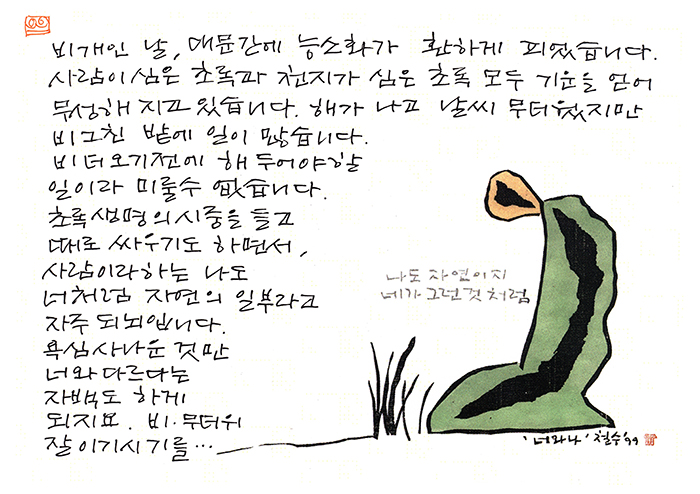 비개인 날, 대문간에 능소화가 환하게 피었습니다.
사람이 심은 초록과 천지가 심은 초록 모두 기운을 얻어
무성해 지고 있습니다. 해가 나고 날씨 무더웠지만
비그친 밭에 일이 많습니다.
비 더 오기전에 해 두어야할
일이라 미룰수 없습니다.
초록생명의 시중을 들고
때로 싸우기도 하면서,
사람이라하는 나도
너처럼 자연의 일부라고
자주 되뇌입니다.
욕심사나운 것만
너와다르다는
자백도 하게
되지요. 비·무더위
잘 이기시기를…
나도 자연이지
네가 그런것 처럼
'너와나' 철수 '99